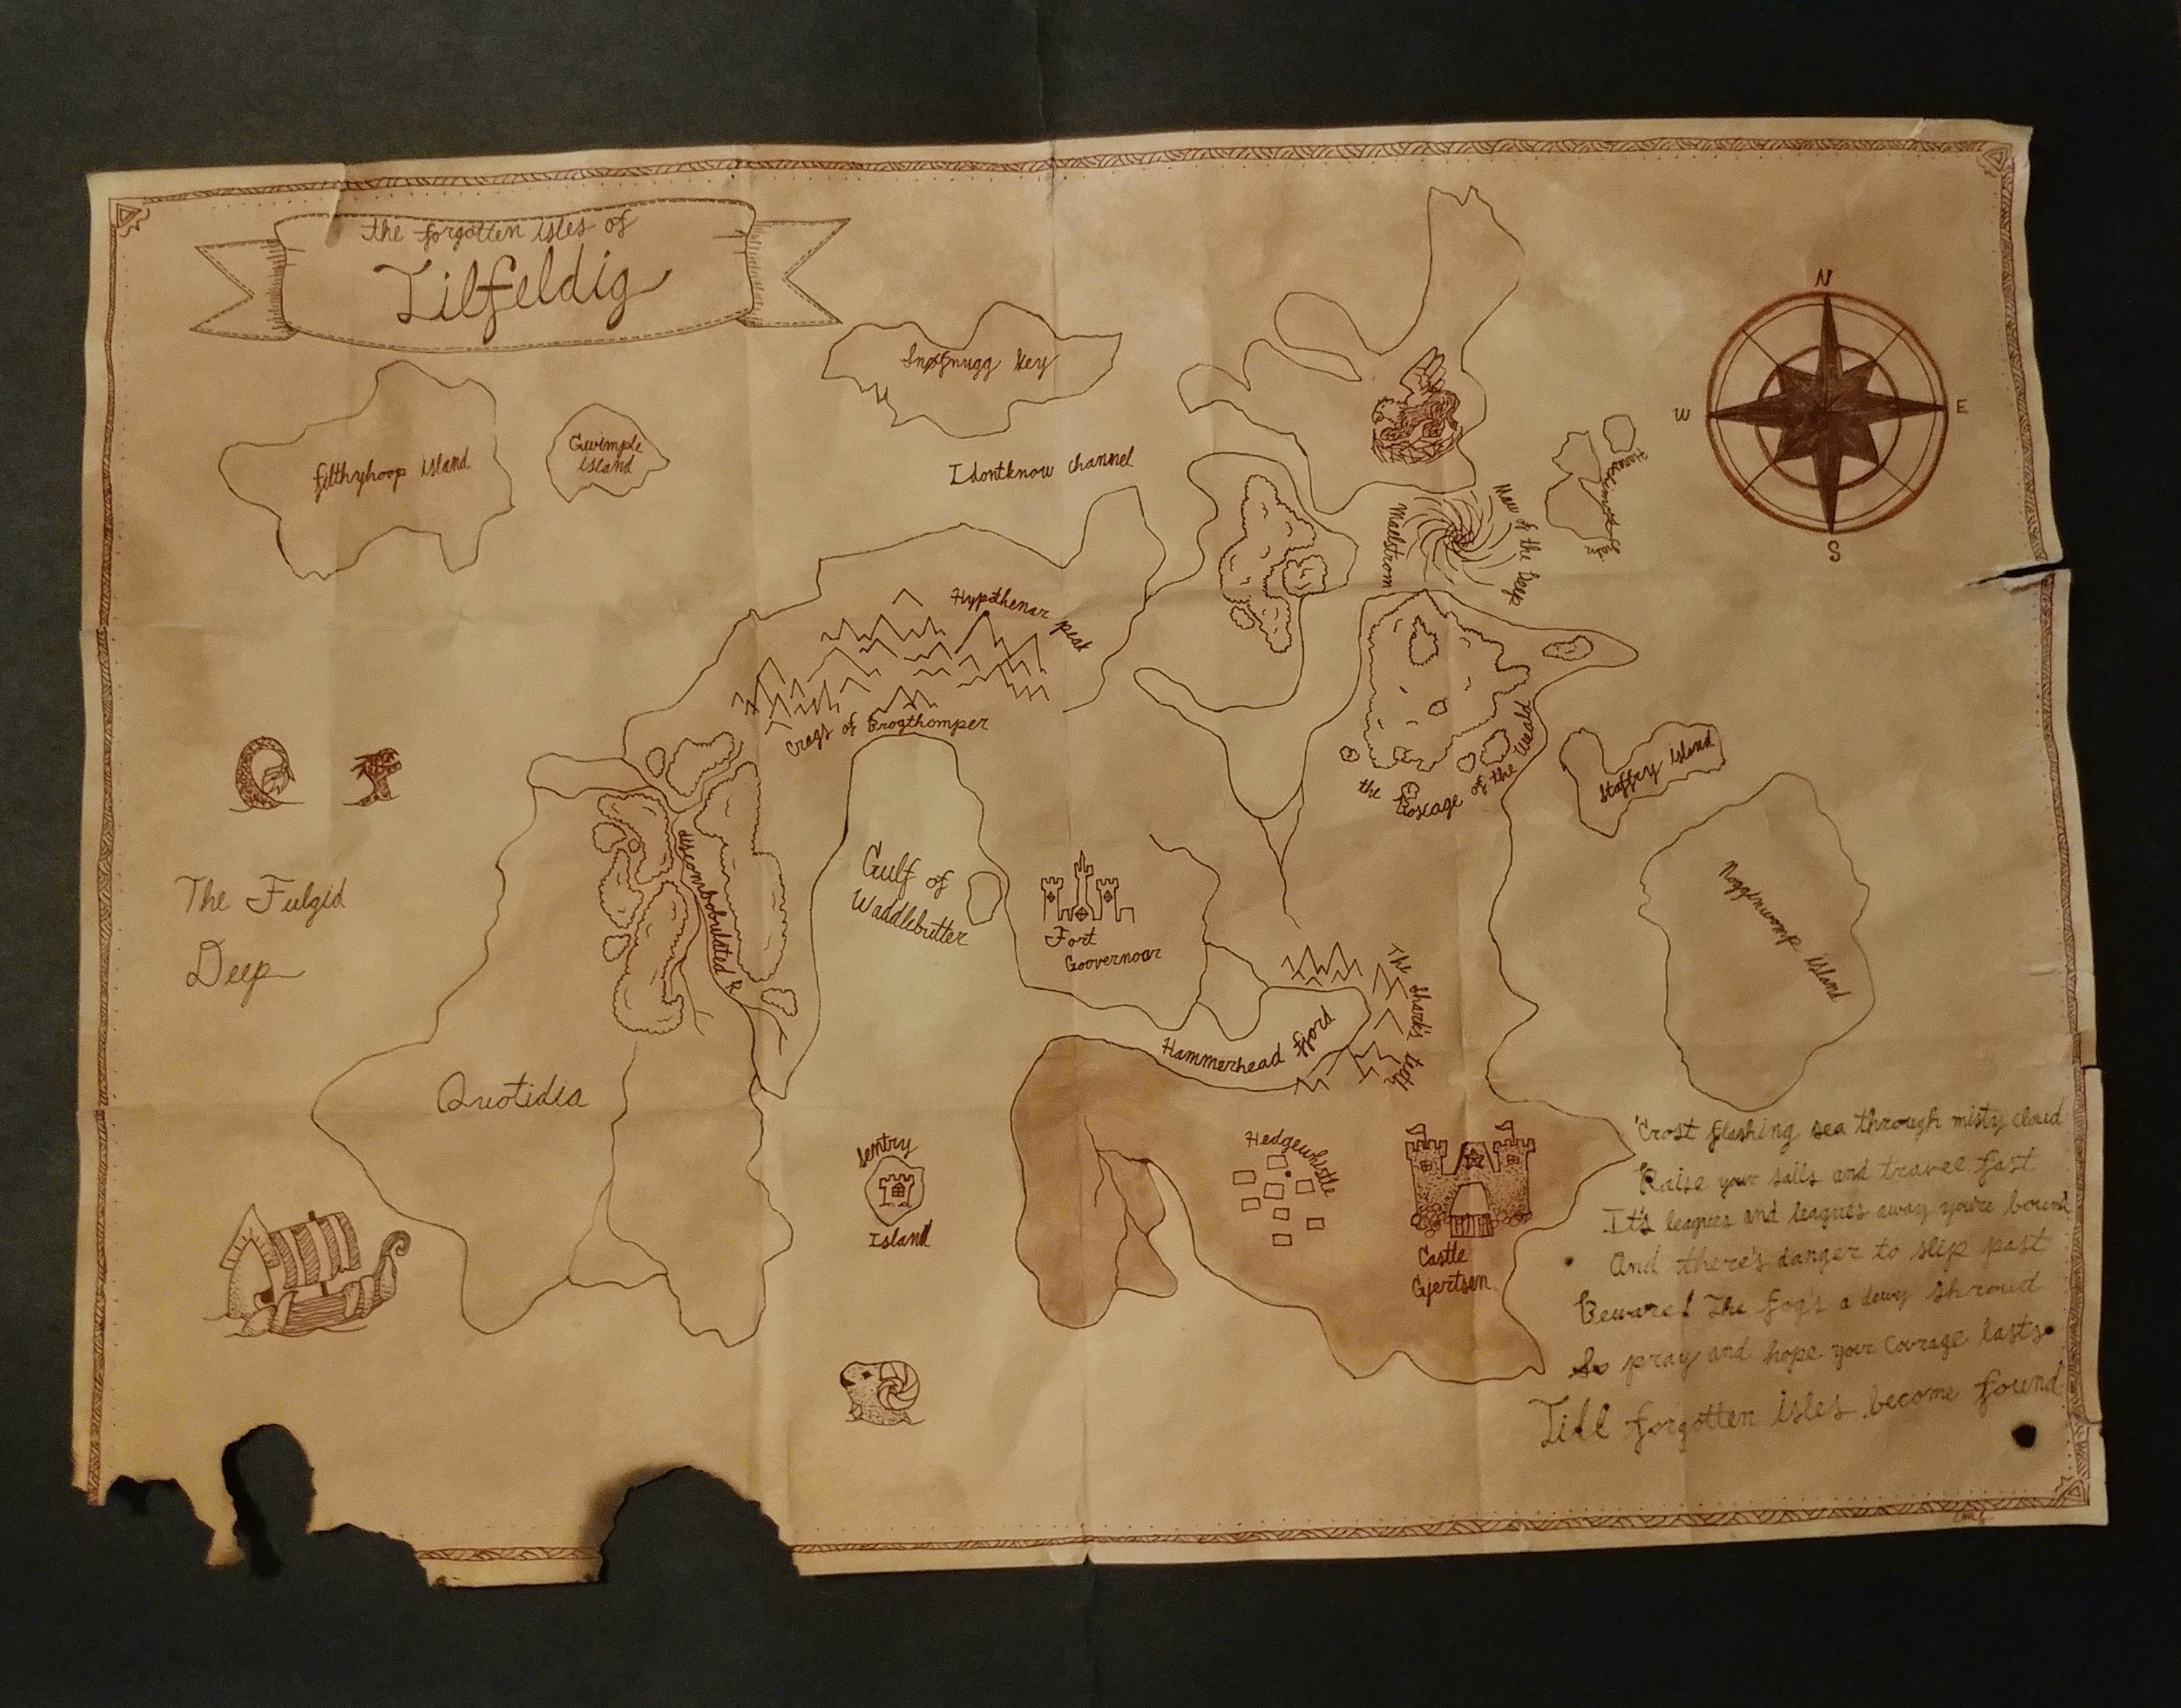 the forgotten isles of
Tilfeldig
N
W
E
S
filthyhoop island
Gwimple
island
Snøfnugg key
Idontknow channel
Maelstrom
Maw of the Deep
Hypøthenar peak
Crags of Brogthomper
the Boscage of the Weald
Staffry island
Nogginwomp island
discombobulated R.
Gulf of
Waddlebutter
Fort
Goovernoor
The Fulgid
Deep
Quotidia
Hammerhead fjord
The shark's teeth
Sentry
Island
Hedgewhistle
Castle
Gjertsen
'Crost flashing sea through misty cloud
Raise your sails and travel fast
It's leagues and leagues away you're bound
And there's danger to slip past
Beware! The fog's a dewy shroud
So pray and hope your courage lasts
Till forgotten isles become found